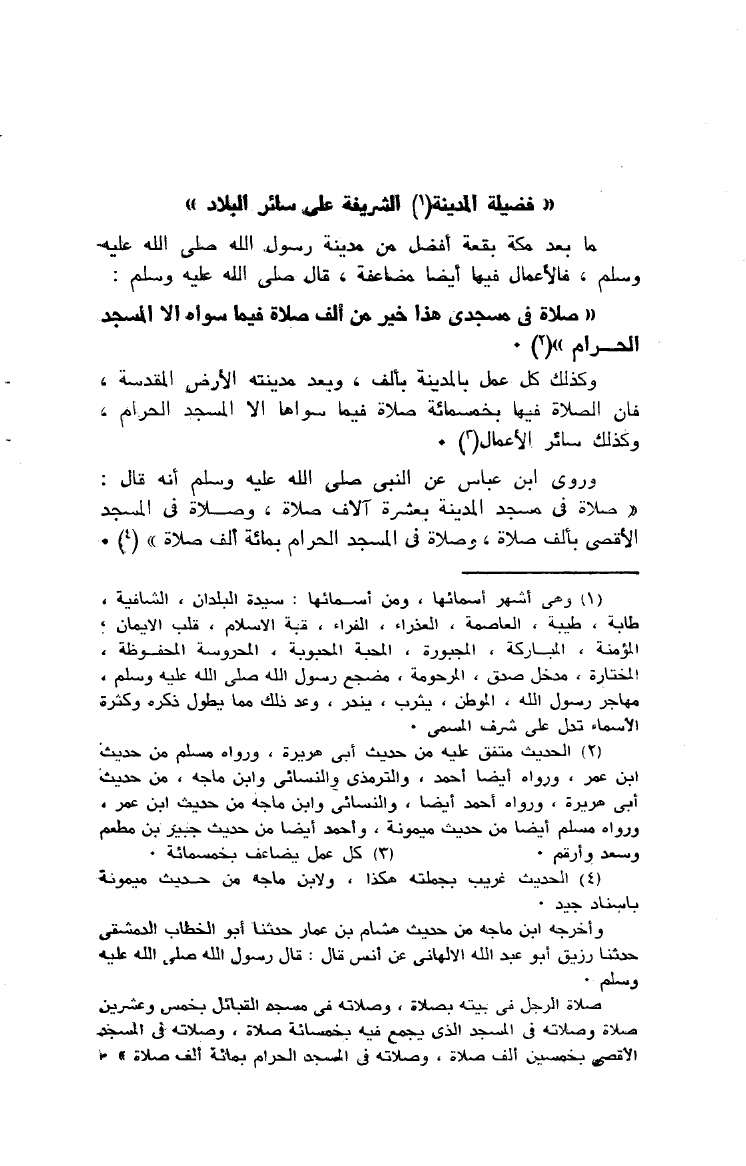 « فضيلة المدينة(١) الشريفة على سائر البلاد »
ما بعد مكة بقعة أفضل من مدينة رسول الله صلى الله عليه
وسلم ، فالأعمال فيها أيضا مضاعفة ، قال صلى الله عليه وسلم :
« صلاة فى مسجدى هذا خير من ألف صلاة فيما سواه الا المسجد
الحـــرام »(٢) ٠
وكذلك كل عمل بالمدينة بألف ، وبعد مدينته الأرض المقدسة ،
فان الصلاة فيها بخمسمائة صلاة فيما سواها الا المسجد الحرام ،
وكذلك سائر الأعمال(٣) ٠
وروى ابن عباس عن النبى صلى الله عليه وسلم أنه قال :
« صلاة فى مسجد المدينة بعشرة آلاف صلاة ، وصـــلاة فى المسجد
الأقصى بألف صلاة ، وصلاة فى المسجد الحرام بمائة ألف صلاة » (٤) ٠
(١) وهى أشهر أسمائها ، ومن أســمائها : سيدة البلدان ، الشافية ،
طابة ، طيبة ، العاصمة ، العذراء ، الغراء ، قبة الاسلام ، قلب الايمان ؛
المؤمنة ، المبـاركة ، المجبورة ، المحبة المحبوبة ، المحروسة المحفـوظة ،
المختارة ، مدخل صدق ، المرحومة ، مضجع رسول الله صلى الله عليه وسلم ،
مهاجر رسول الله ، الموطن ، يثرب ، يندر ، وعد ذلك مما يطول ذكره وكثرة
الأسماء تدل على شرف المسمى ٠
(٢) الحديث متفق عليه من حديث أبى هريرة ، ورواه مسلم من حديث
ابن عمر ، ورواه أيضا أحمد ، والترمذى والنسائى وابن ماجه ، من حديث
أبى هريرة ، ورواه أحمد أيضا ، والنسائى وابن ماجه من حديث ابن عمر ،
ورواه مسلم أيضا من حديث ميمونة ، وأحمد أيضا من حديث جبير بن مطعم
وسعد وأرقم ٠ (٣) كل عمل يضاعف بخمسمائة ٠
(٤) الحديث غريب بجملته هكذا ، ولابن ماجه من حـديث ميمونة
باسناد جيد ٠
وأخرجه ابن ماجه من حديث هشام بن عمار حدثنا أبو الخطاب الدمشقى
حدثنا رزيق أبو عبد الله الالهانى عن أنس قال : قال رسول الله صلى الله عليه
وسلم ٠
صلاة الرجل فى بيته بصلاة ، وصلاته فى مسجد القبائل بخمس وعشرين
صلاة وصلاته فى المسجد الذى يجمع فيه بخمسائة صلاة ، وصلاته فى المسجد
الأقصى بخمسين ألف صلاة ، وصلاته فى المسجد الحرام بمائة ألف صلاة »